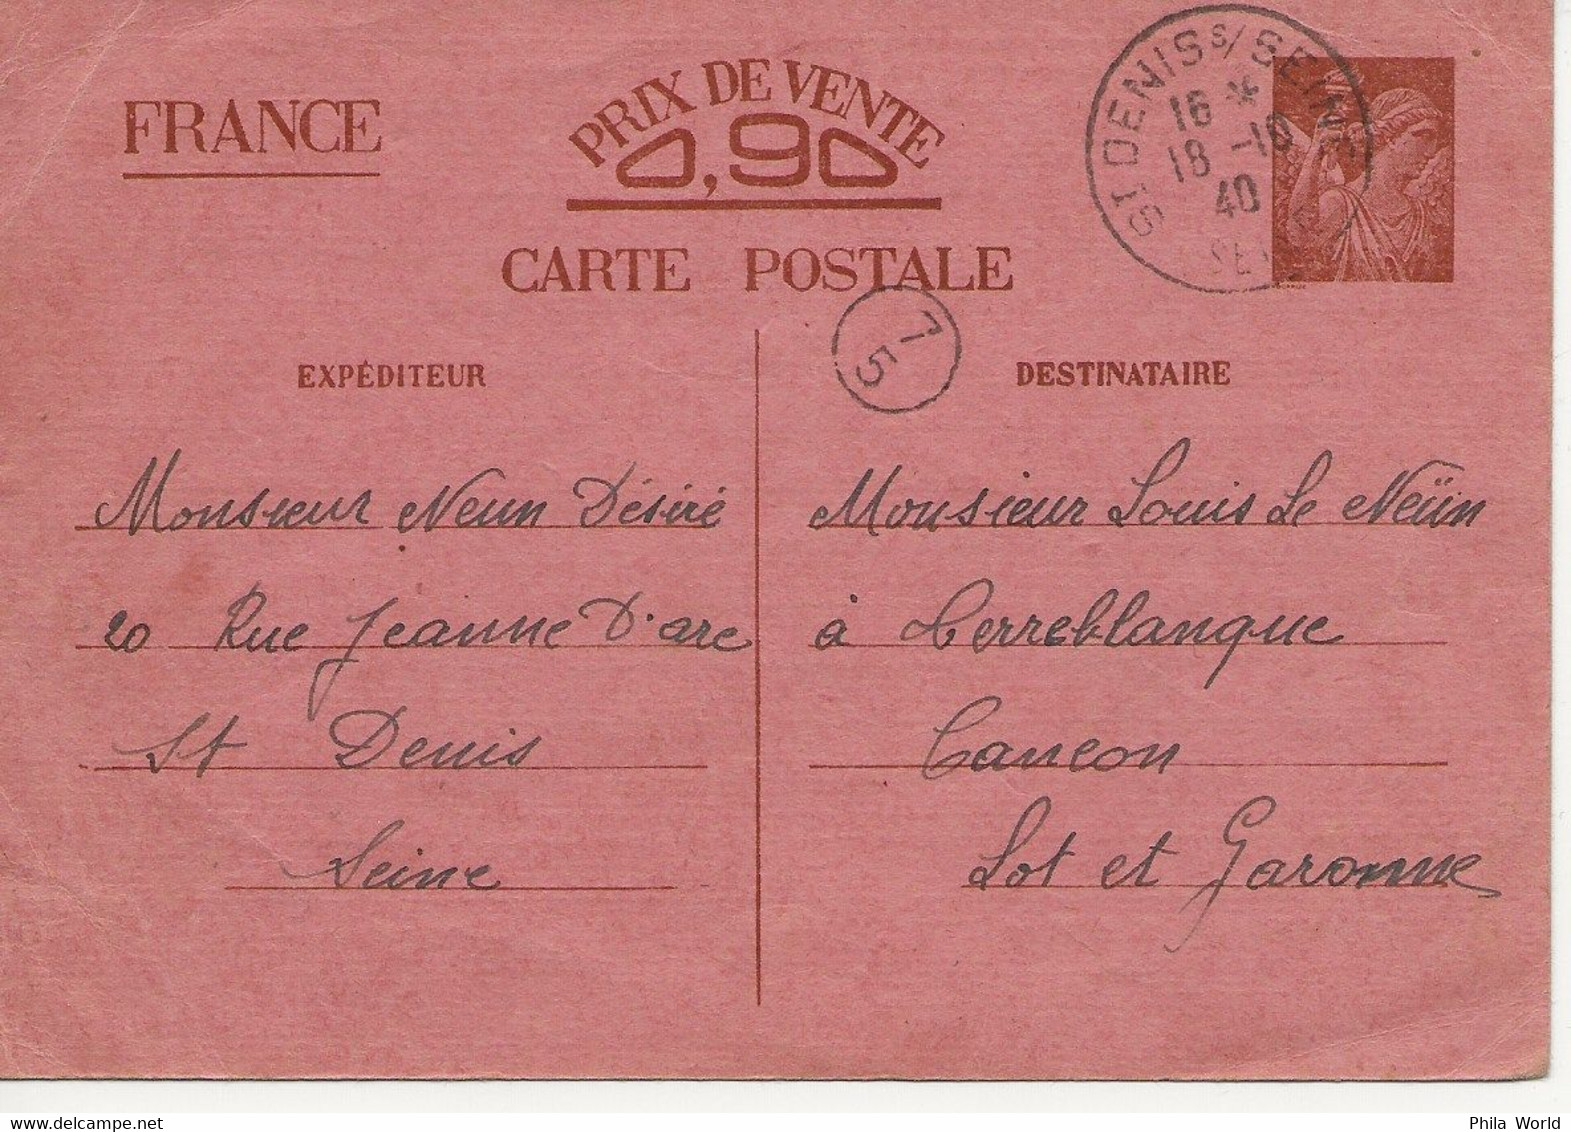 FRANCE
PRIX DE VENTE
0,90
CARTE POSTALE
ST DENIS S/ SEINE
16 *
18 -10
40
7
5
EXPÉDITEUR
Monsieur Neun Désiré
20 Rue Jeanne D'arc
St Denis
Seine
DESTINATAIRE
Monsieur Louis Le Neün
à Terreblanque
Cancon
Lot et Garonne
Phila World